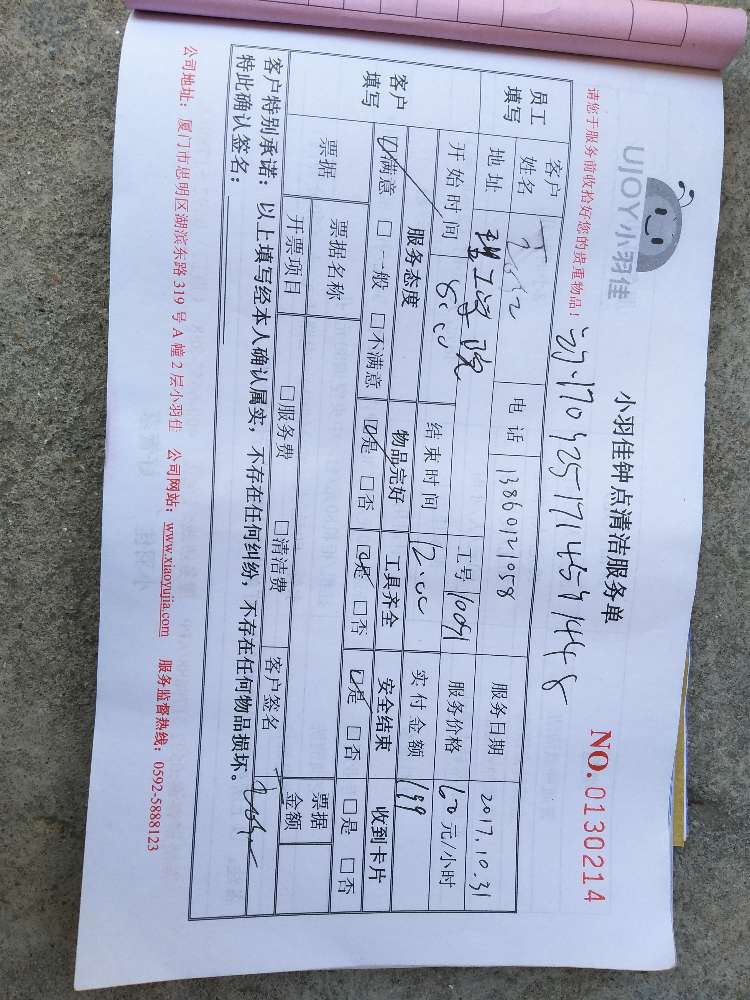 UJOY小羽佳
小羽佳钟点清洁服务单
NO.0130214
请您于服务前收拾好您的贵重物品！
员工填写 客户姓名 电话 13860121058 服务日期 2017.10.31
地址 理工学院 工号 10091 服务价格 60元/小时
客户填写 开始时间 8:00 结束时间 12:00 实付金额 199
服务态度 物品完好 工具齐全 安全结束 收到卡片
☑满意 □一般 □不满意 ☑是 □否 ☑是 □否 ☑是 □否 □是 □否
票据 票据名称 票据金额
开票项目 □服务费 □清洁费 客户签名
客户特别承诺：以上填写经本人确认属实，不存在任何纠纷，不存在任何物品损坏。
特此确认签名：
公司地址：厦门市思明区湖滨东路319号A幢2层小羽佳 公司网站：www.xiaoyujia.com 服务监督热线：0592-5888123